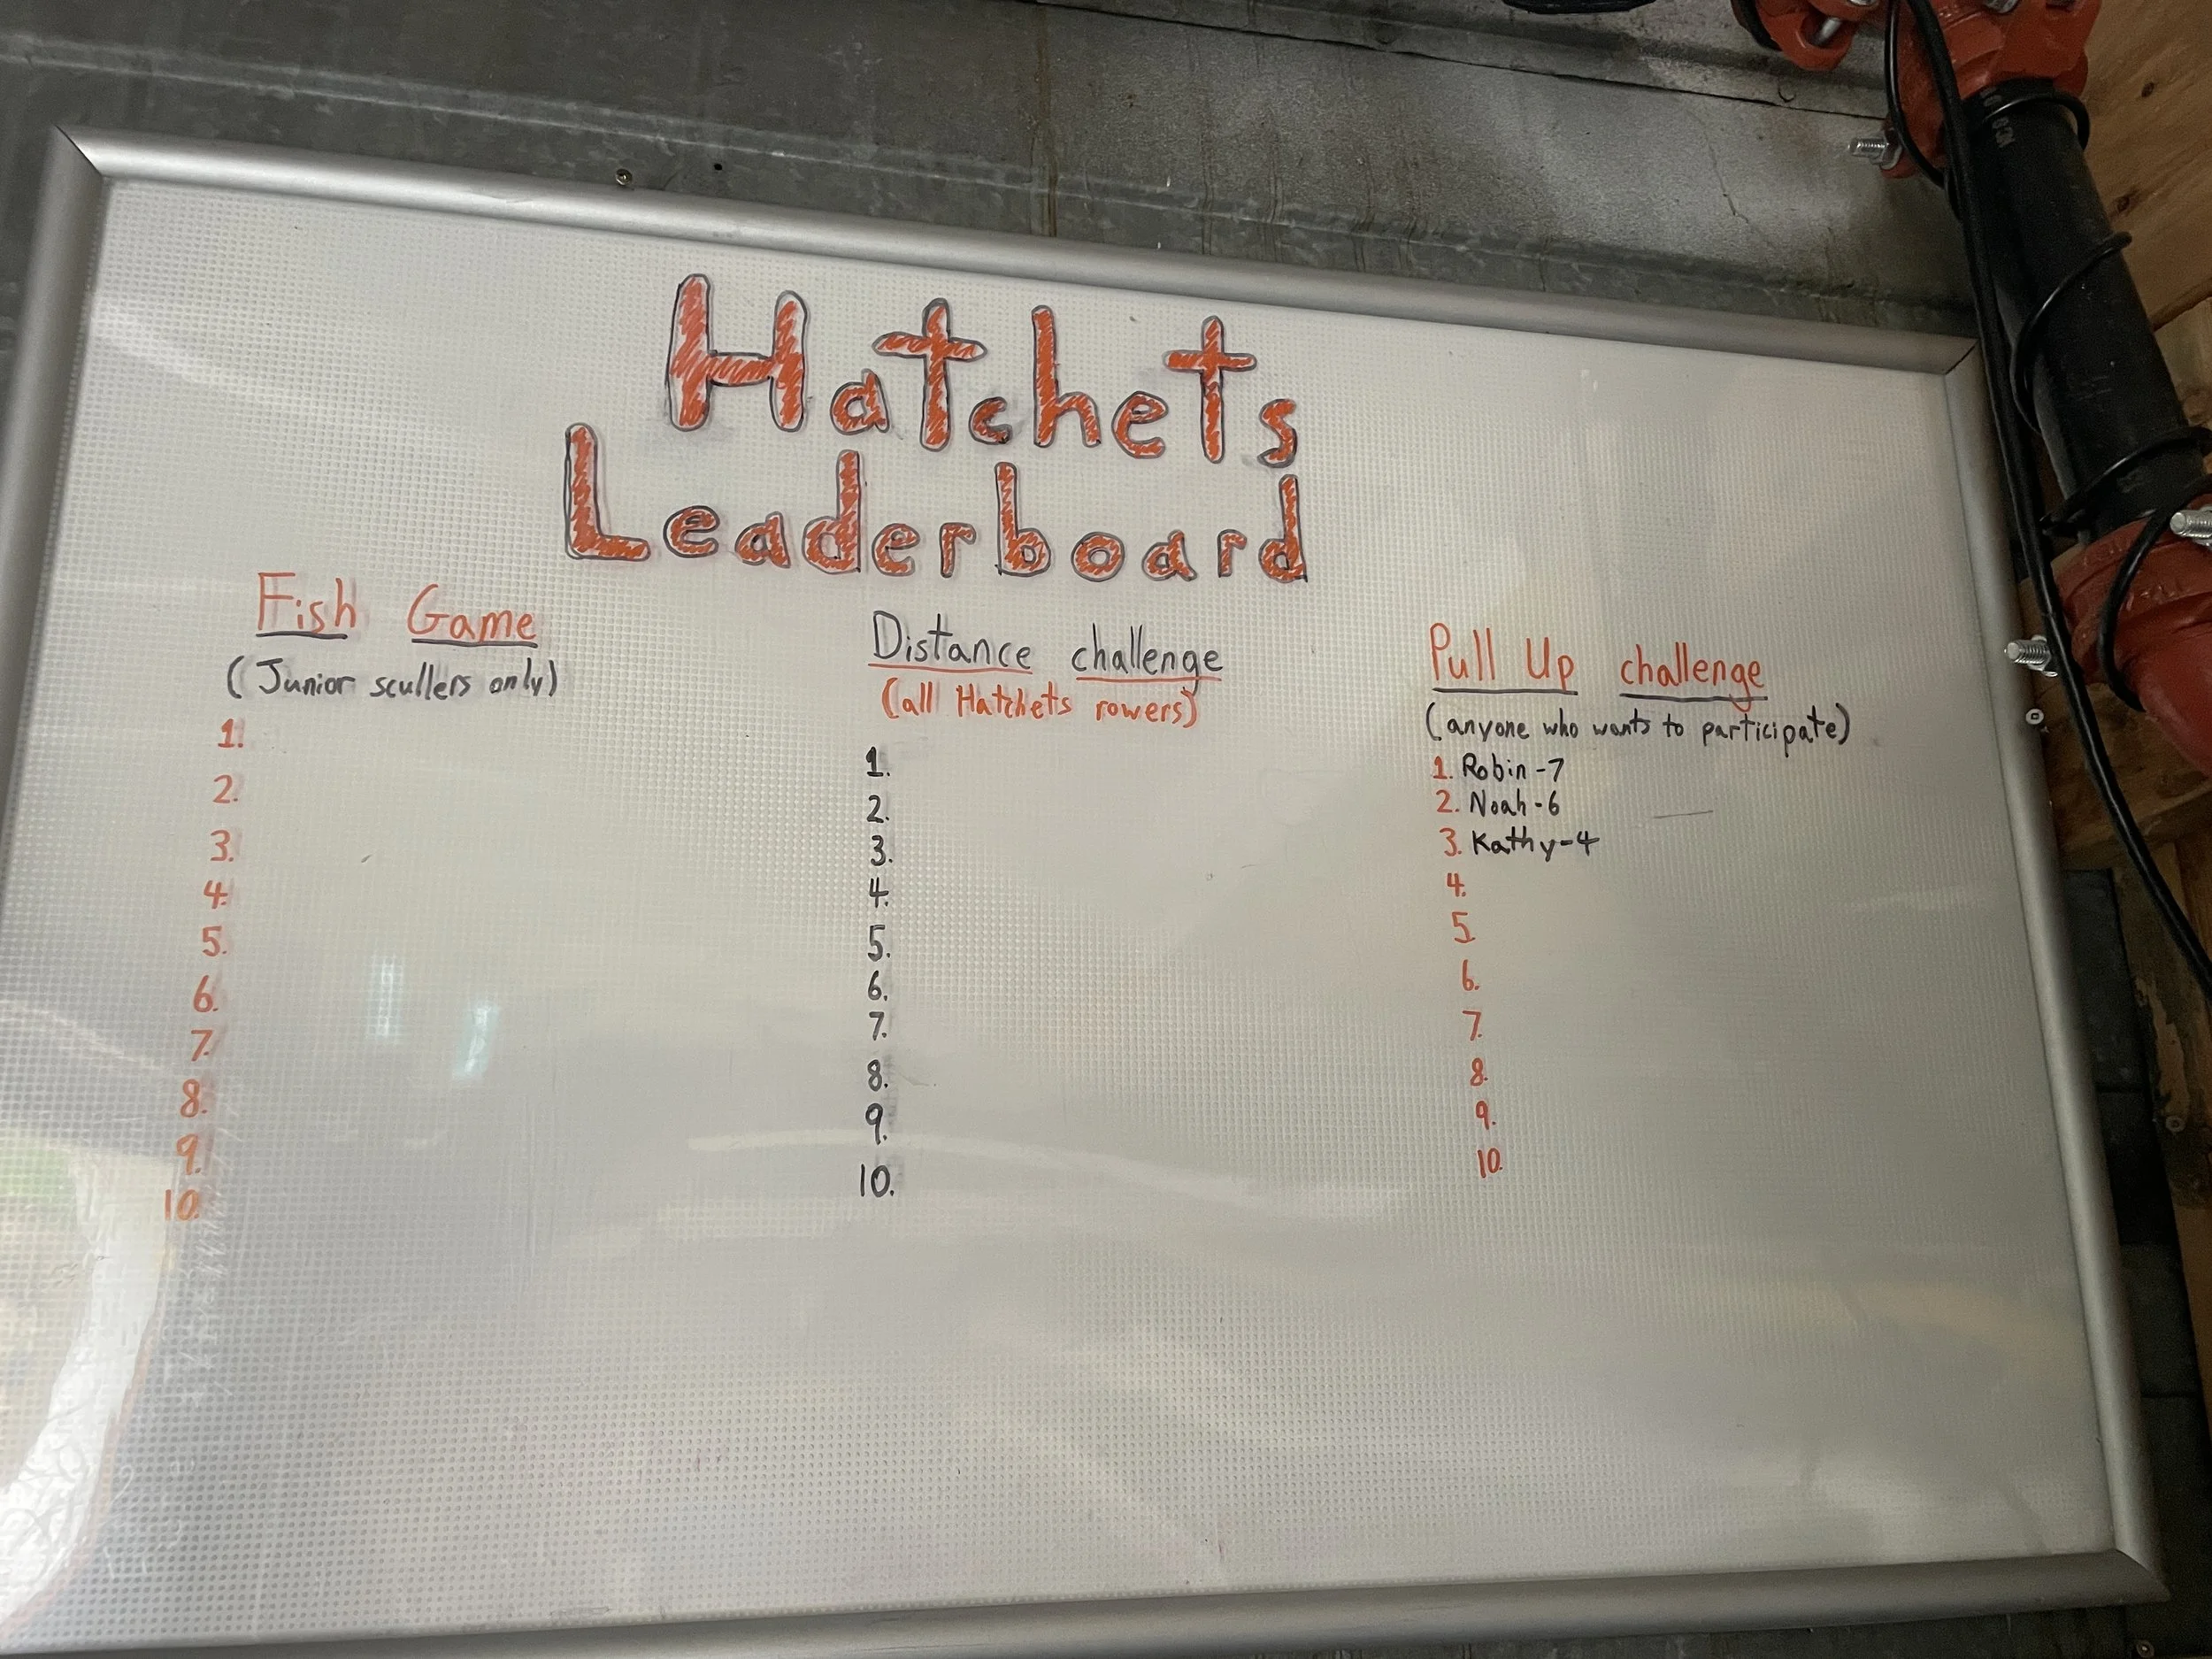 Hatchets
Leaderboard
Fish Game
(Junior scullers only)
1.
2.
3.
4.
5.
6.
7.
8.
9.
10.
Distance challenge
(all Hatchets rowers)
1.
2.
3.
4.
5.
6.
7.
8.
9.
10.
Pull Up challenge
(anyone who wants to participate)
1. Robin - 7
2. Noah - 6
3. Kathy - 4
4.
5
6.
7.
8.
9.
10.